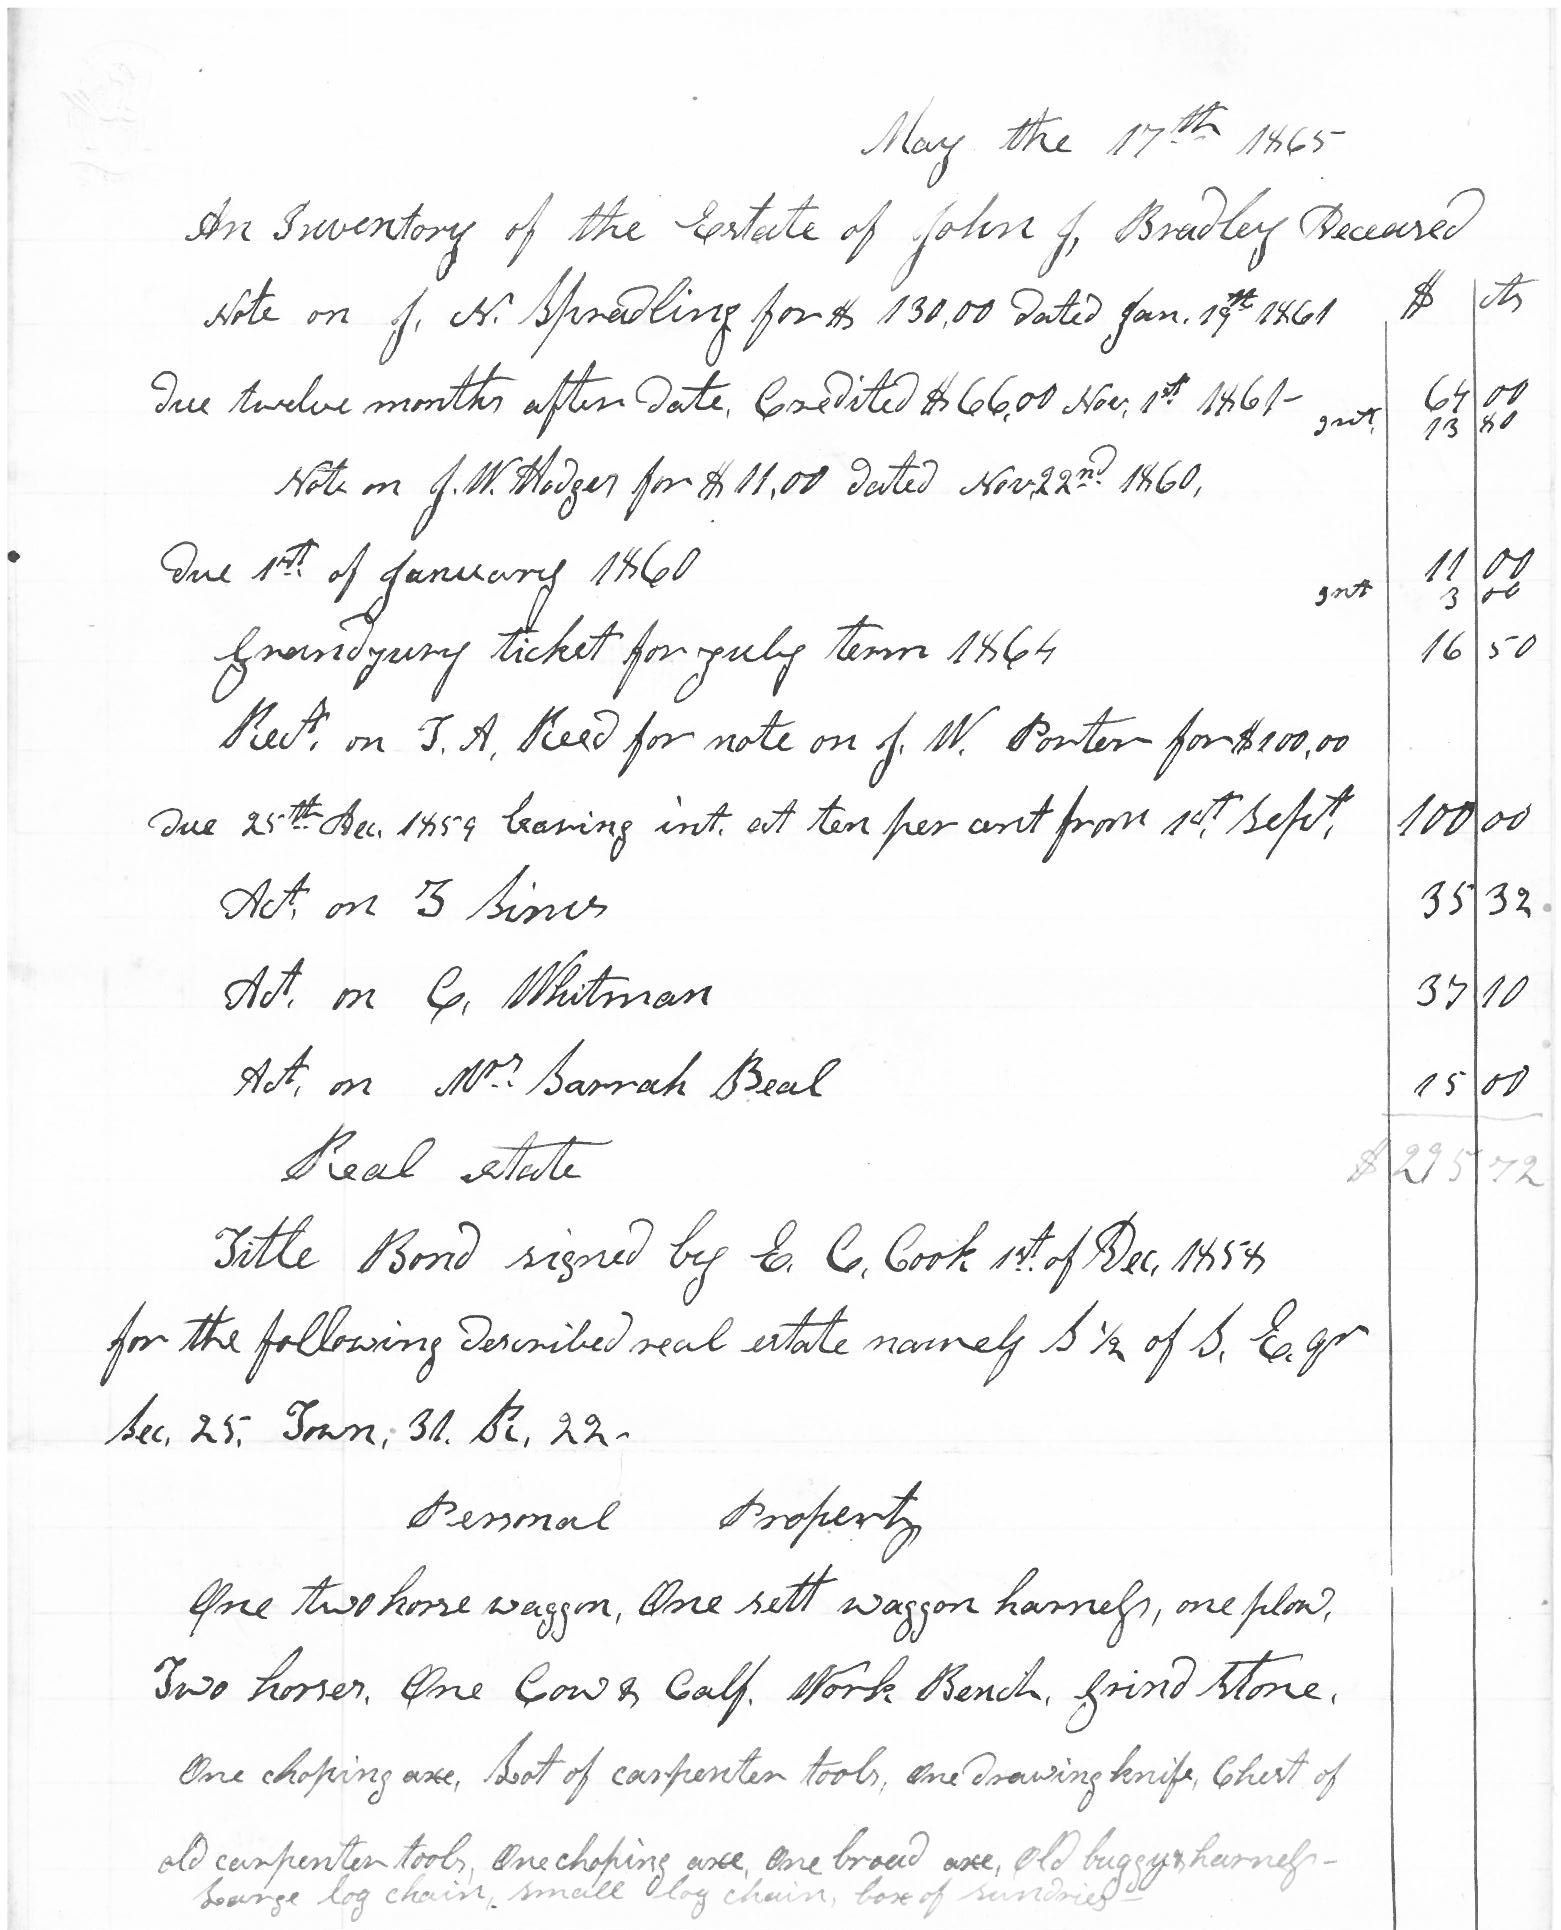 May the 17th 1865
An Inventory of the Estate of John J, Bradley Deceased
Note on J. N. Spradling for $ 130,00 dated Jan. 19th 1861 $ cts
due twelve months after date, Credited $66,00 Nov, 1st 1861- 64 00
Int, 13 80
Note on J. W. Hodges for $ 11,00 dated Nov,22nd 1860,
due 1st of January 1860 11 00
Int 3 00
Grandjury ticket for july term 1864 16 50
Rect, on T. A, Reed for note on J. W. Porter for $100,00
due 25th Dec. 1859 bearing int. at ten per cent from 1st, Sept, 100 00
Act, on T Sims 35 32
Act, on C, Whitman 37 10
Act, on Mrs Sarrah Beal 15 00
Real estate $ 295 72
Title Bond signed by E. C, Cook 1st of Dec, 1858
for the following described real estate namely S ½ of S. E. qr
Sec, 25, Town, 31. R, 22-
Personal Property
One two horse waggon, One sett waggon harness, one plow,
Two horses, One Cow & Calf. Work Bench, Grind Stone,
One choping axe, Lot of carpenter tools, One drawing knife, Chest of
old carpenter tools, One choping axe, One broad axe, Old buggy & harness-
Large log chain, small log chain, box of sundries-